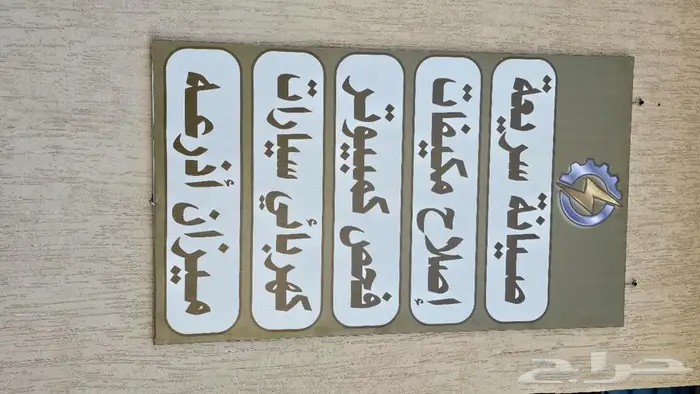 صيانة سريعة
إصلاح مكيفات
فحص كمبيوتر
كهربائي سيارات
ميزان أذرعه
حراج